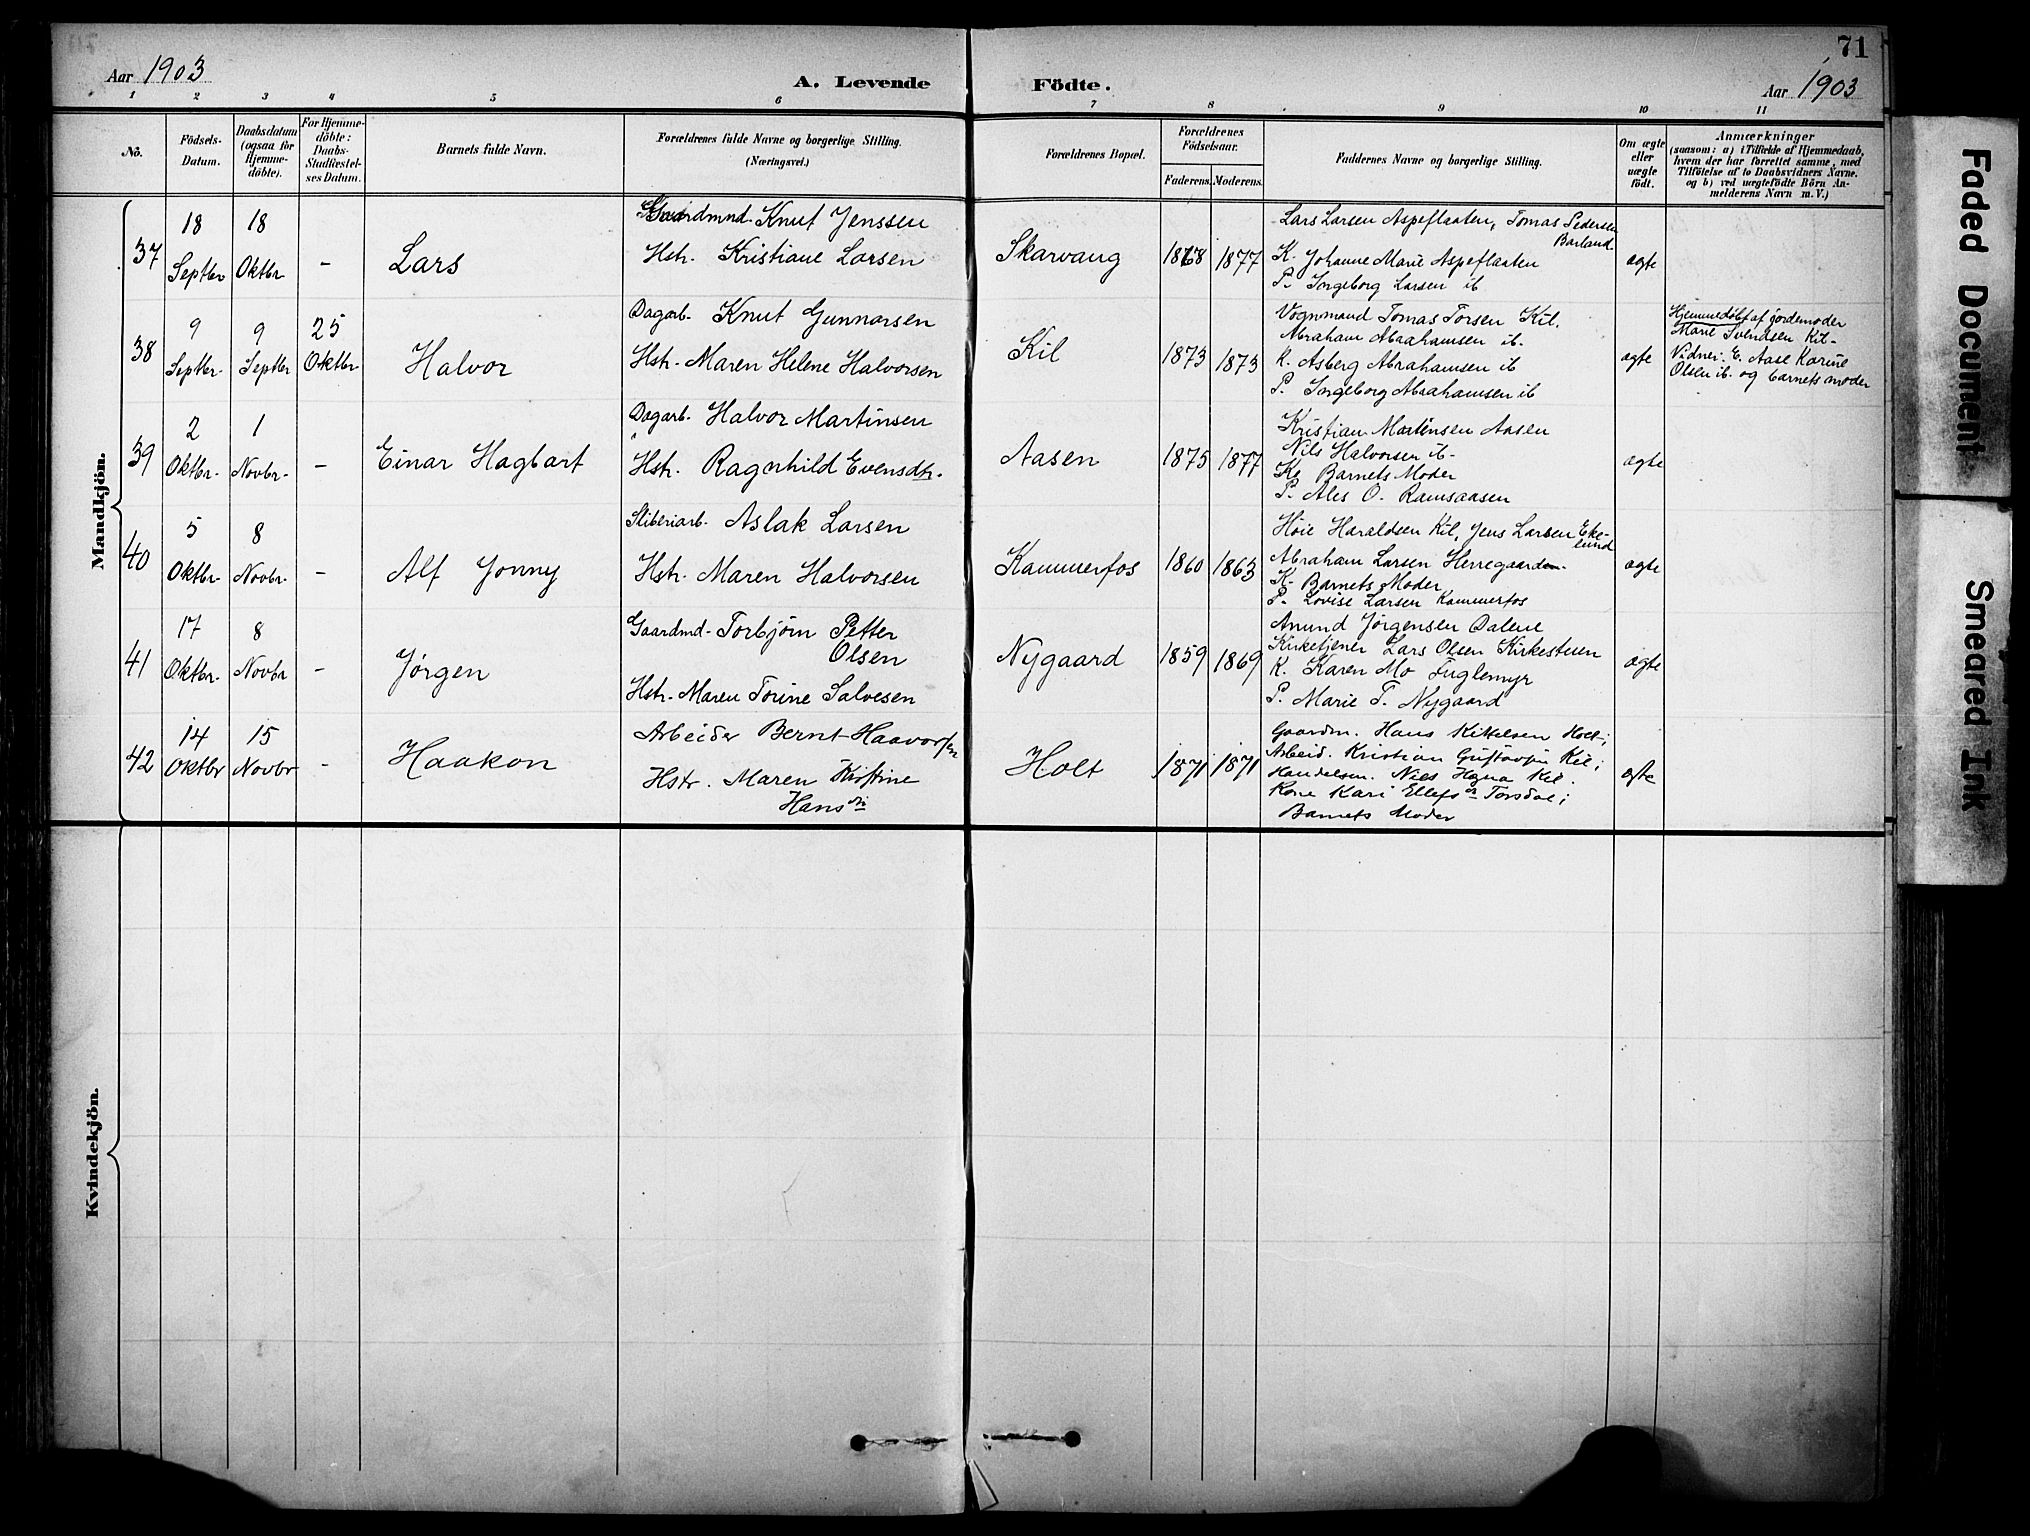 71
Aar 1903
A. Levende Födte.
Aar 1903
1 2 3 4 5 6 7 8 9 10 11
No.
Födsels-
Datum.
Daabsdatum
(ogsaa for
Hjemme-
döbte).
For Hjemme-
döbte:
Daabs-
Stadfæstel-
ses Datum.
Barnets fulde Navn.
Forældrenes fulde Navne og borgerlige Stilling.
(Næringsvei.)
Forældrenes Bopæl.
Forældrenes
Födselsaar.
Faderens. Moderens.
Faddernes Navne og borgerlige Stilling.
Om ægte
eller
uægte
födt.
Anmærkninger
(saasom: a) i Tilfælde af Hjemmedaab,
hvem der har forrettet samme, med
Tilföielse af to Daabsvidners Navne.
og b) ved uægtefödte Börn An-
melderens Navn m. V.)
Mandkjön.
37
18
Septbr
18
Oktbr
-
Lars
Gaardmnd. Knut Jenssen
Hstr. Kristiane Larsen
Skarvang
1868
1877
Lars Larsen Aspeflaaten, Tomas Pedersen
Barland
K. Johanne Marie Aspeflaaten
P. Ingeborg Larsen ib
ægte
38
9
Septbr.
9
Septbr
25
Oktbr
Halvor
Dagarb. Knut Gunnarsen
Hstr. Maren Helene Halvorsen
Kil
1873
1873
Vognmand Tomas Torsen Kil.
Abraham Abrahamsen ib.
K. Asberg Abrahamsen ib
P. Ingeborg Abrahamsen ib
ægte
Hjemmedøbt af jordemoder
Marie Svendsen Kil-
Vidner: E. Aase Karine
Olsen ib. og barnets moder
39
2
Oktbr.
1
Novbr.
-
Einar Hagbart
Dagarb. Halvor Martinsen
Hstr. Ragnhild Evensdtr.
Aasen
1875
1877
Kristian Martinsen Aasen
Nils Halvorsen ib-
K. Barnets Moder
P. Ales O. Ramsaasen
ægte
40
5
Oktbr.
8
Novbr.
-
Alf Jonny
Sliberiarb. Aslak Larsen
Hstr. Maren Halvorsen
Kammerfos
1860
1863
Høie Haraldsen Kil, Jens Larsen Eke-
lund
Abraham Larsen Herregaarden
K. Barnets Moder
P. Lovise Larsen Kammerfos
ægte
41
17
Oktbr.
8
Novbr
-
Jørgen
Gaardmd. Torbjørn Petter
Olsen
Hstr. Maren Torine Salvesen
Nygaard
1859
1869
Anund Jørgensen Dalene
Kirketjener Lars Olsen Kirkestuen
K. Karen Mo Fuglemyr
P. Marie T. Nygaard
ægte
42
14
Oktbr
15
Novbr
-
Haakon
Arbeider Bernt Haavorsen
Hstr. Maren Kristine
Hansdtr
Holt
1871
1871
Gaardm. Hans Kittelsen Holt;
Arbeid. Kristian Gustavsen Kil;
Handelsm. Niels Kil.
Kone Kari Ellefsdn Torsdal;
Barnets Moder
ægte
Kvindekjön.
Faded Document
Smeared Ink